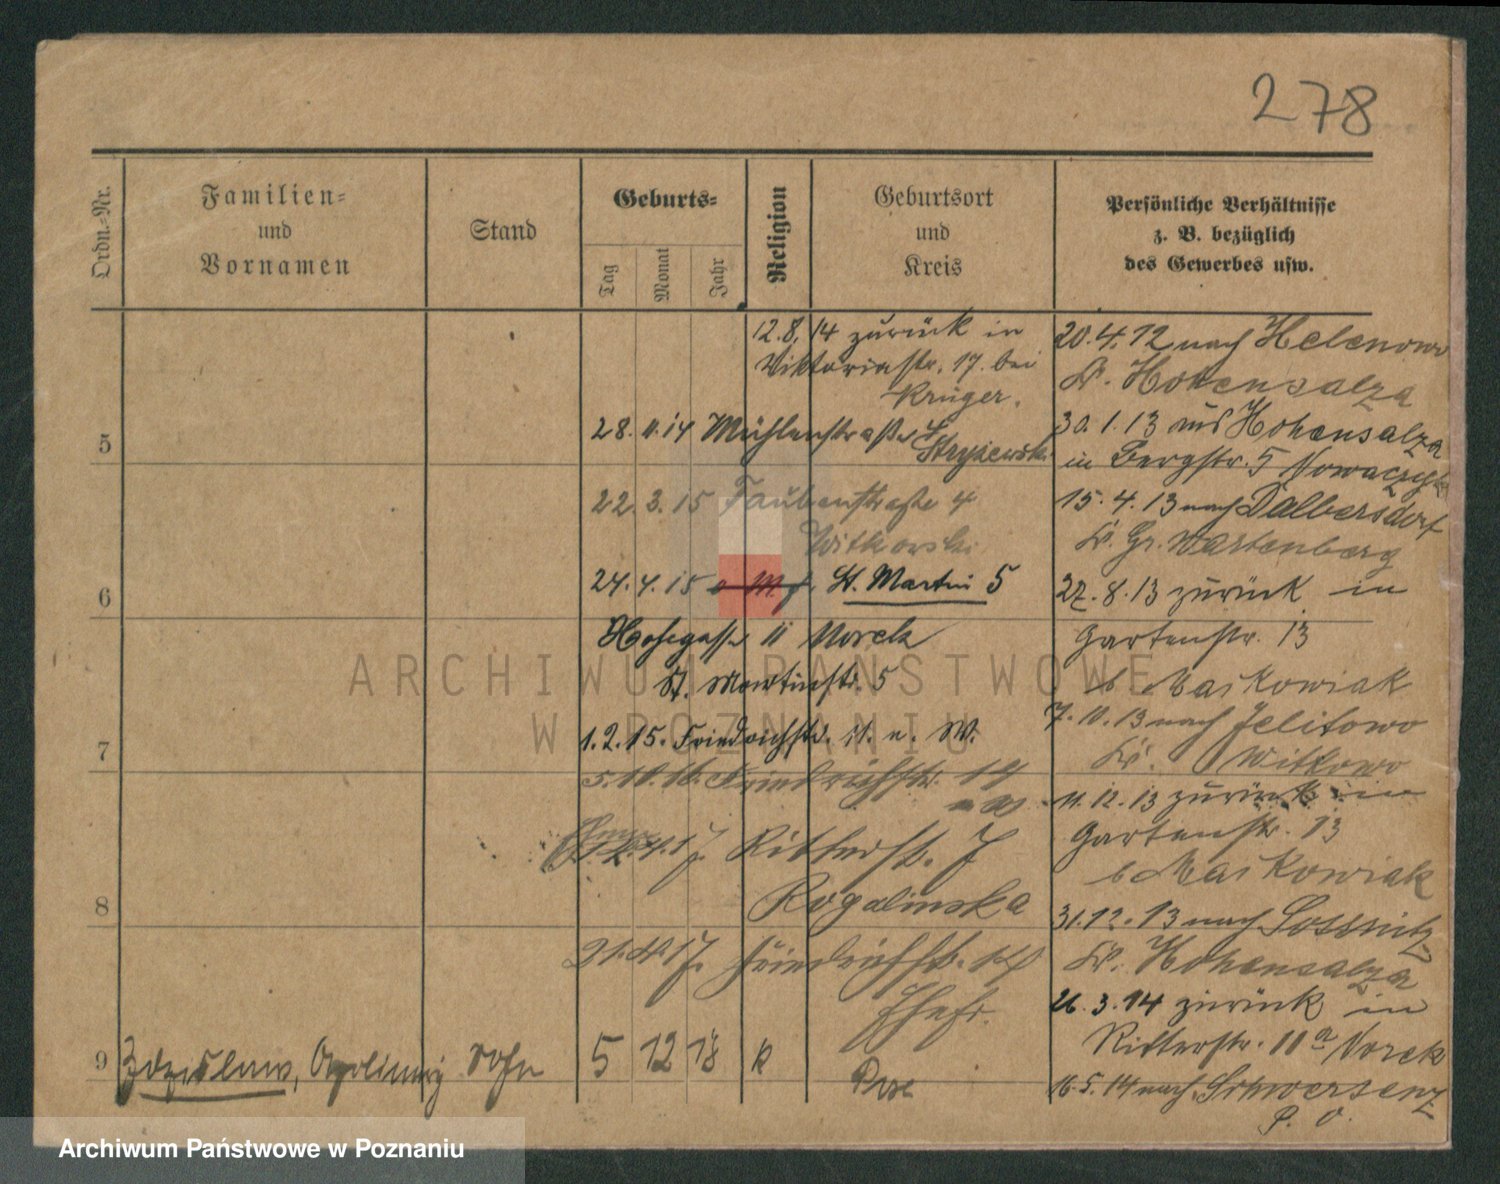 278
Ordn.-Nr.
Familien-
und
Vornamen
Stand
Geburts-
Tag
Monat
Jahr
Religion
Geburtsort
und
Kreis
Persönliche Verhältnisse
z. B. bezüglich
des Gewerbes usw.
12.8.14 zurück in
Viktoriastr. 17. bei
Krüger.
5
28. 11. 14 Mühlenstraße 4
Stryżewski
22. 3. 15 Taubenstraße 4
Witkowski
6
24. 4. 15 St. Martin 5
Hohegasse 11 Norek
St. Martinstr. 5
7
1. 2. 15. Friedrichstr. 11. n. W.
5. 11. 16. Friedrichstr. 14
4. 17. Ritterstr. 7
Rogalinska
8
17. Friedrichstr. 14
Ehefr.
9
Zdzislaw, Apolinary Sohn 5 12 18 k
Pose
20. 4. 12 nach Helenowo
Kr. Hohensalza
30. 1. 13 aus Hohensalza
in Bergstr. 5 Nowaczyk
15. 4. 13 nach Dalbersdorf
Kr. Gr. Wartenberg
27. 8. 13 zurück in
Gartenstr. 13
b Maikowiak
7. 11. 13 nach Jelitowo
Kr. Witkowo
11. 12. 13 zurück in
Gartenstr. 13
b Maikowiak
31. 12. 13 nach
Kr. Hohensalza
26. 3. 14 zurück in
Ritterstr. 11a Norek
16. 5. 14 nach Schwersenz
P. O.
ARCHIWUM PAŃSTWOWE
W POZNANIU
Archiwum Państwowe w Poznaniu